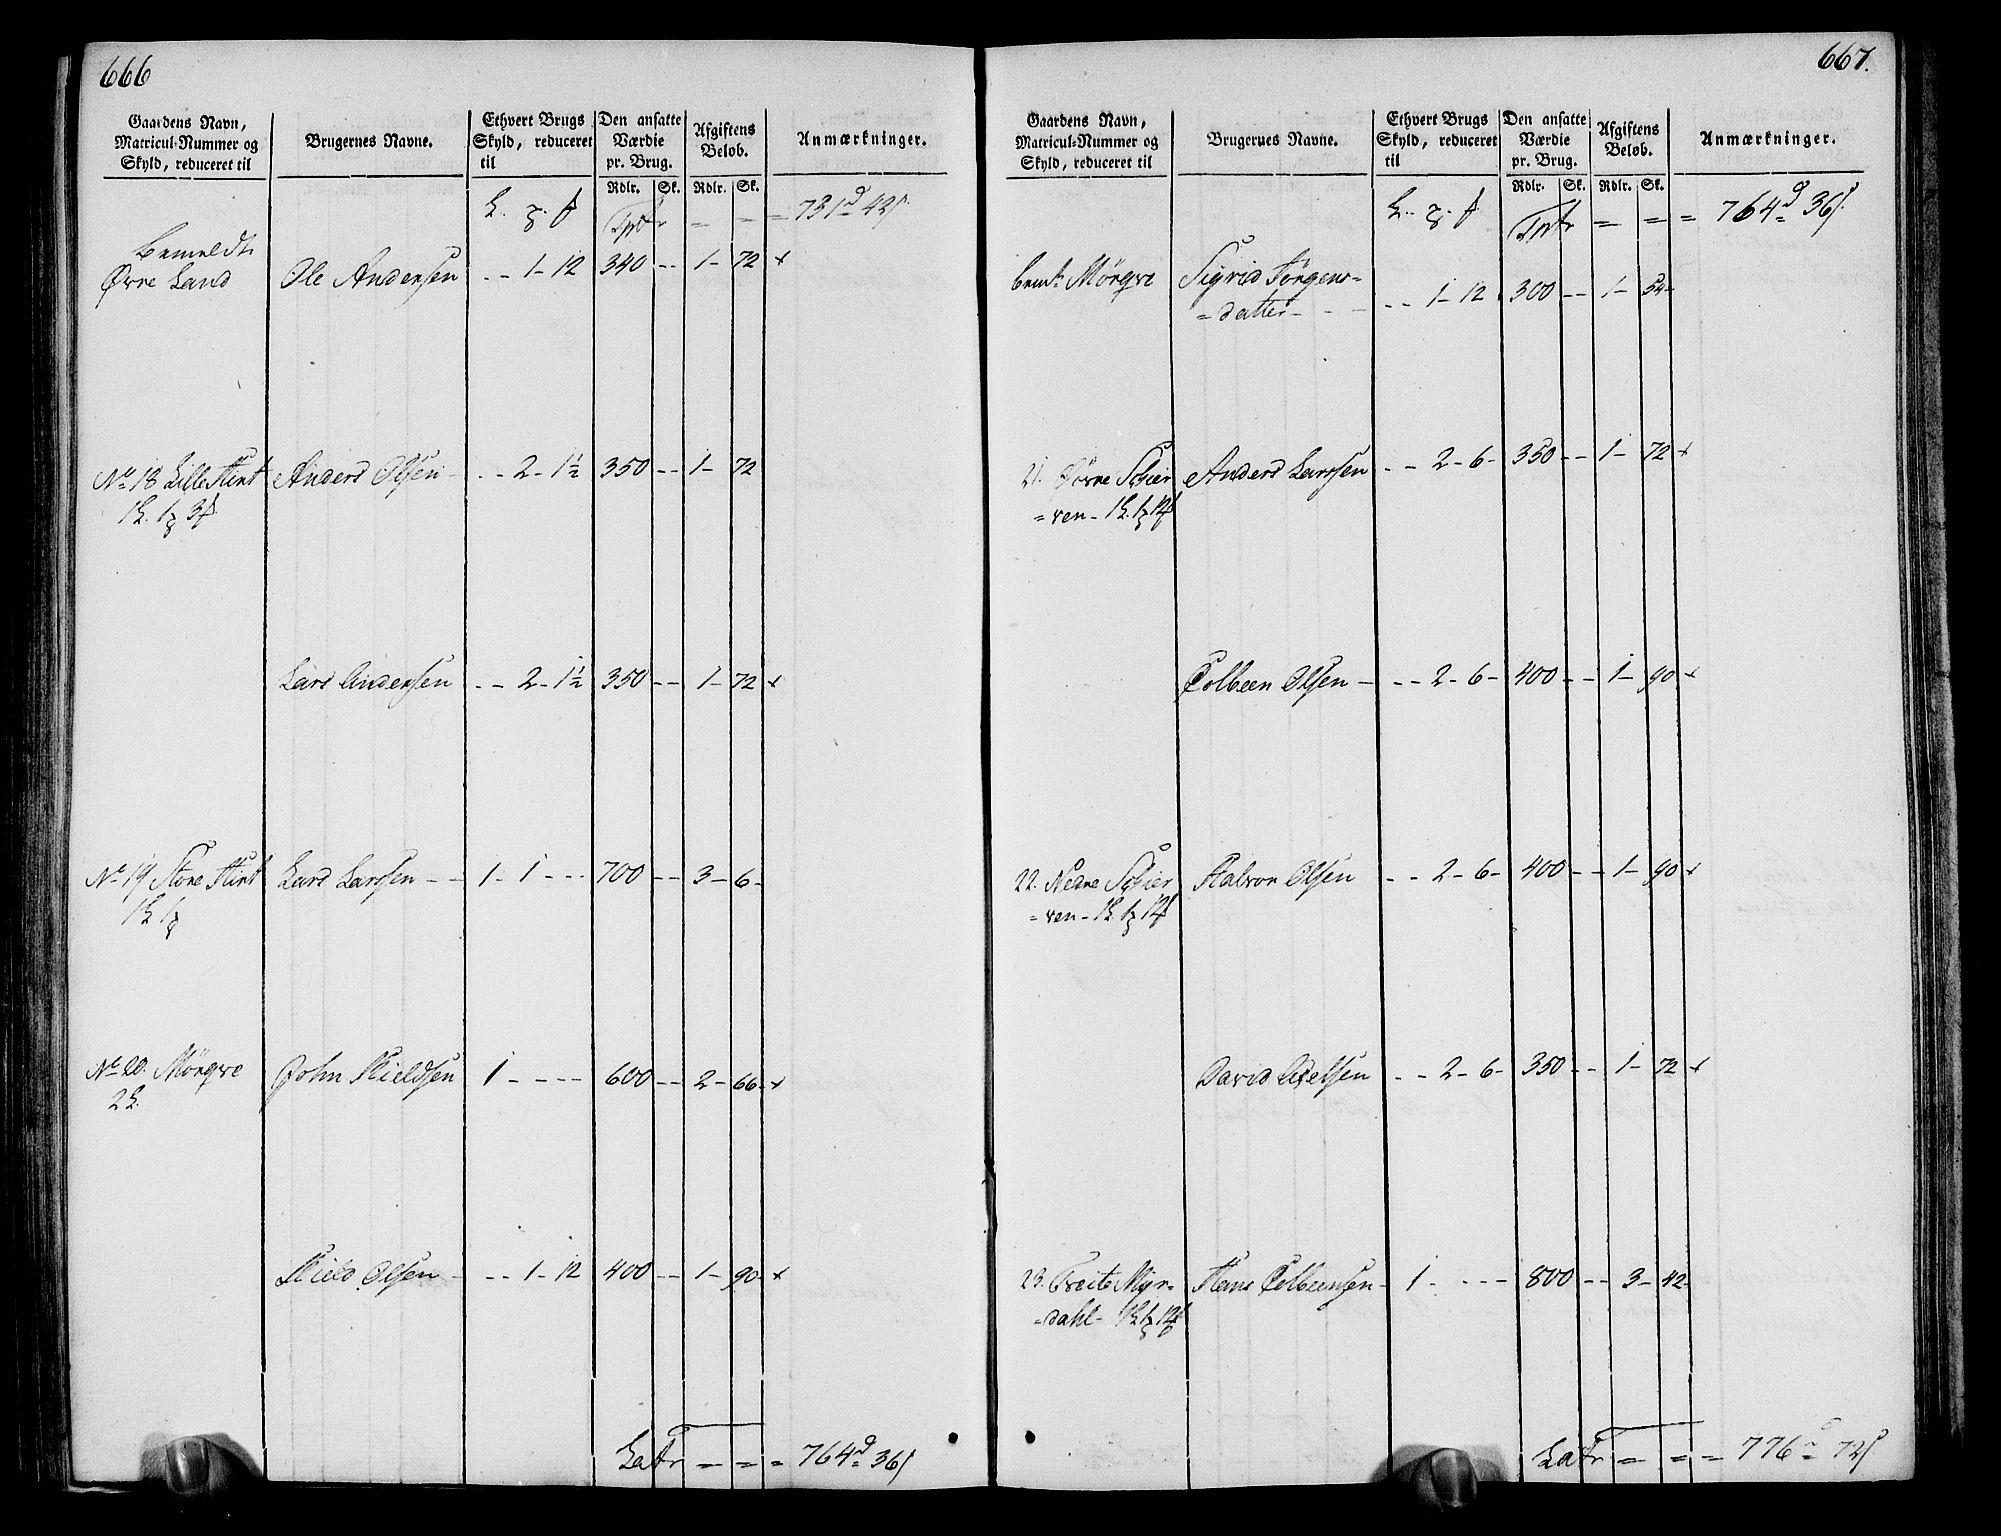 666
Gaardens Navn, Matricul-Nummer og Skyld, reduceret til
Brugernes Navne.
Ethvert Brugs Skyld, reduceret til
Den ansatte Værdie pr. Brug.
Afgiftens Beløb.
Anmærkninger.
Rdlr. Sk. Rdlr. Sk.
Tptr = = = 731 d 42 s.
Bemeldte
Øvre Land Ole Andersen - - 1 - 12 340 - - 1 - 72 +
No 18 Lille Flint Anders Olsen - - - 2 - 1½ 350 - - 1 - 72
Lars Andersen - - 2 - 1½ 350 - - 1 - 72 +
No 19 Store Flint Lars Larssen - - 1 - 1 - - - 700 - - 3 - 6 -
No 20. Mørqve John Kieldsen 1 - - - - 600 - - 2 - 66 - +
Kield Olsen - - - 1 - 12 400 - - 1 - 90 - +
LaTr = = = 764 d 36 s
667.
Gaardens Navn, Matricul-Nummer og Skyld, reduceret til
Brugernes Navne.
Ethvert Brugs Skyld, reduceret til
Den ansatte Værdie pr. Brug.
Afgiftens Beløb.
Anmærkninger.
Rdlr. Sk. Rdlr. Sk.
Tptr = = = 764 d 36 s.
bemte Mørqve Sigrid Jørgens-
= datter - - - - - 1 - 12 300 - - 1 - 54 -
21. Øvre Schier Anders Larssen - - 2 - 6 - 350 - - 1 - 72 +
= ven -
Colbeen Olsen - - - 2 - 6 - 400 - - 1 - 90 - +
22. Nedre Schier Halvor Olsen - - 2 - 6 - 400 - - 1 - 90 +
= ven -
David Axelsen - - 2 - 6 - 350 - - 1 - 72 +
23. Treite Myr- Hans Colbeensen - 1 - - - - 800 - - 3 - 42 -
= dahl -
LaTr = = = 776 d 72 s